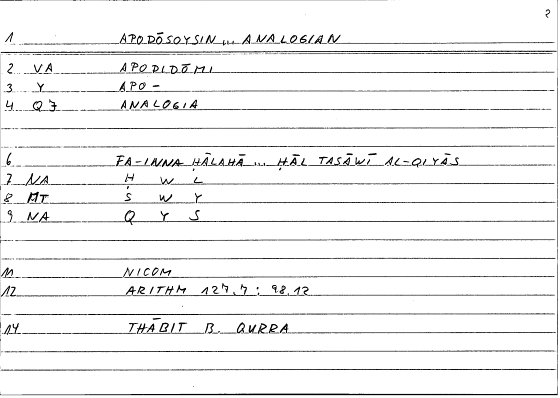 ?
1 APODŌSOYSIN ... ANALOGIAN
2 VA APODIDŌMI
3 Y APO-
4 Q7 ANALOGIA
6 FA-INNA ḤĀLAHĀ ... ḤĀL TASĀWĪ AL-QIYĀS
7 NA Ḥ W L
8 MT S W Y
9 NA Q Y S
11 NICOM
12 ARITHM 127,7 : 98,12
14 THĀBIT B. QURRA